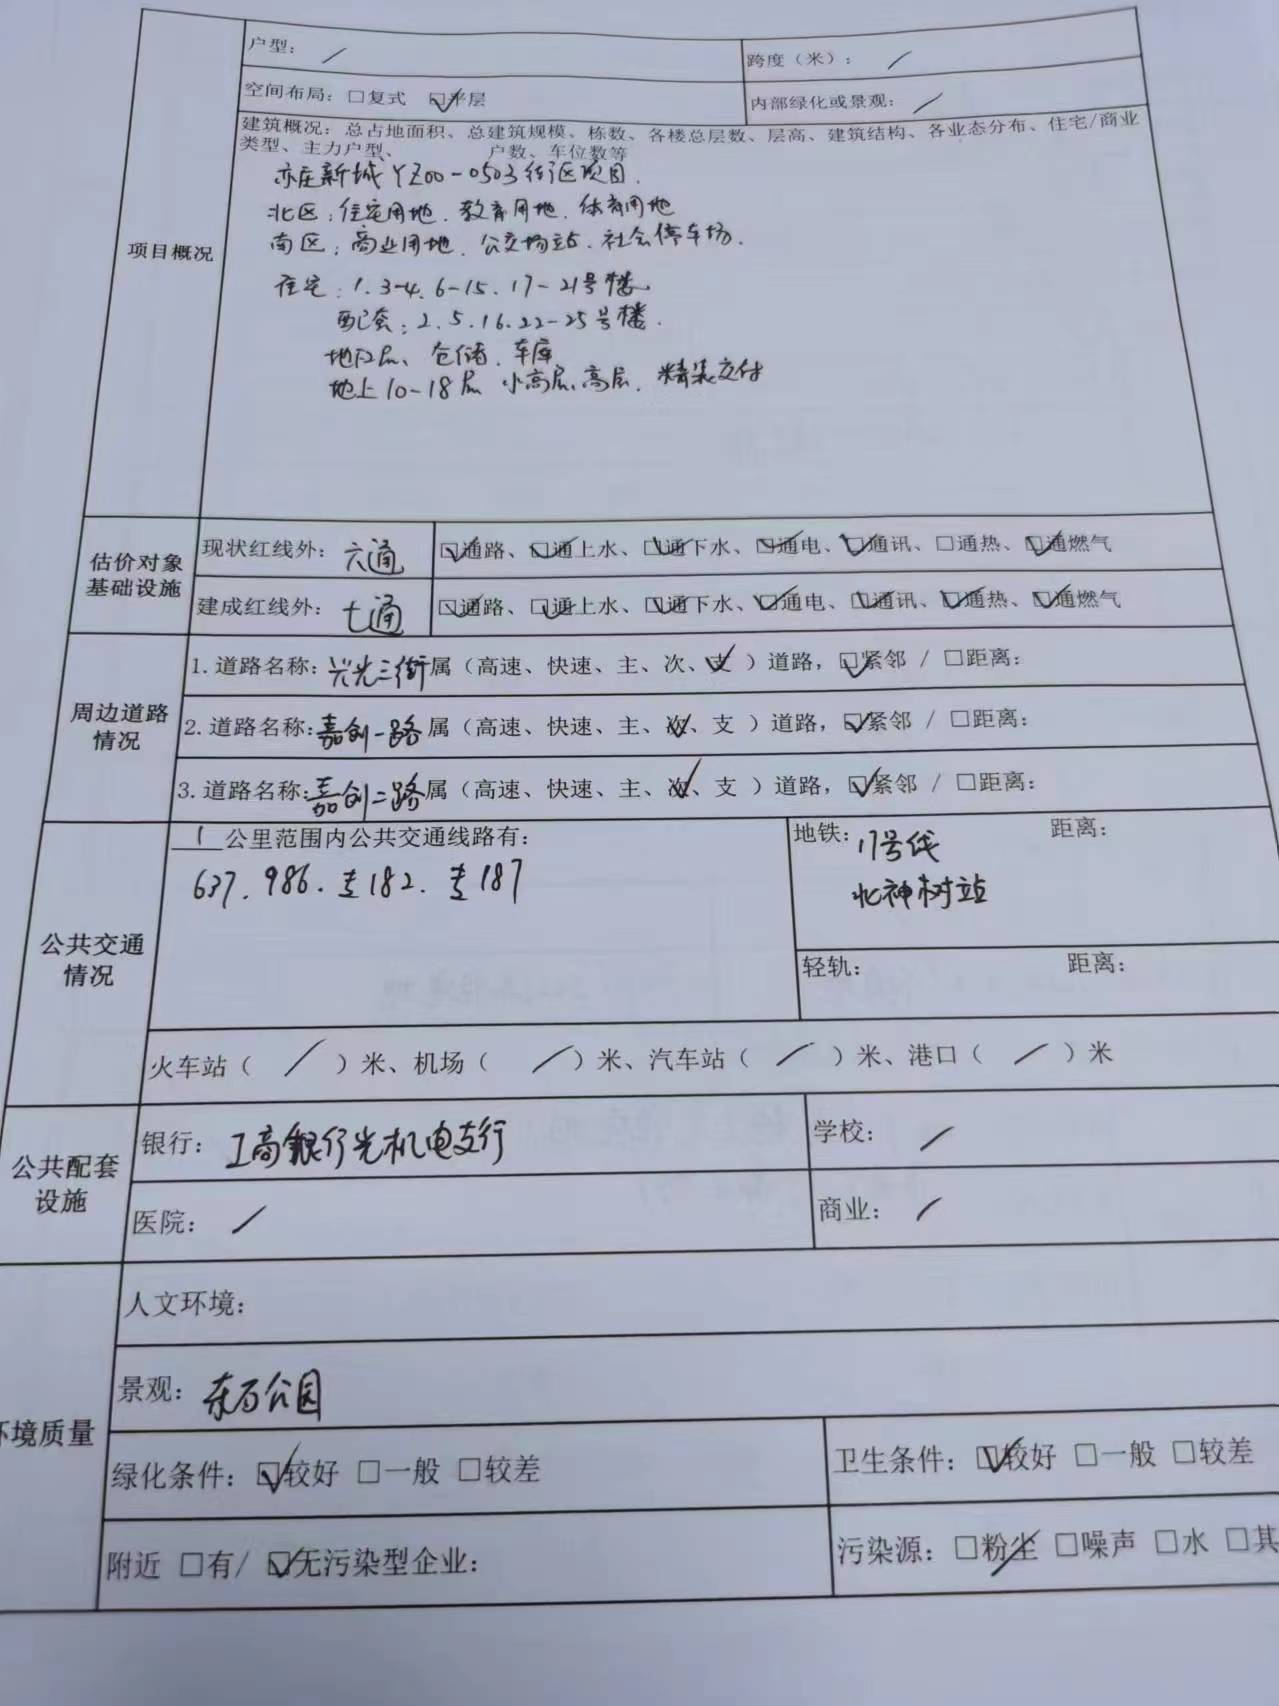 户型： /
跨度（米）： /
空间布局：□复式 ☑平层
内部绿化或景观： /
建筑概况：总占地面积、总建筑规模、栋数、各楼总层数、层高、建筑结构、各业态分布、住宅/商业
类型、主力户型、 户数、车位数等
亦庄新城YZ00-0503街区项目.
北区：住宅用地、教育用地、体育用地
南区：商业用地、公交场站、社会停车场.
项目概况
住宅：1.3-4.6-15.17-21号楼
配套：2.5.16.22-25号楼.
地下2层、仓储、车库
地上10-18层 小高层、高层、精装交付
估价对象
基础设施
现状红线外：六通
☑通路、☑通上水、☑通下水、☑通电、☑通讯、□通热、☑通燃气
建成红线外：七通
☑通路、☑通上水、☑通下水、☑通电、☑通讯、☑通热、☑通燃气
周边道路
情况
1.道路名称：兴光三街属（高速、快速、主、次、支 ）道路，☑紧邻 / □距离：
2.道路名称：嘉创一路属（高速、快速、主、次、支 ）道路，☑紧邻 / □距离：
3.道路名称：嘉创二路属（高速、快速、主、次、支 ）道路，☑紧邻 / □距离：
公共交通
情况
1公里范围内公共交通线路有：
637.986.专182.专187
地铁：17号线 距离：
北神树站
轻轨： 距离：
火车站（ / ）米、机场（ / ）米、汽车站（ / ）米、港口（ / ）米
公共配套
设施
银行：工商银行光机电支行
学校： /
医院： /
商业： /
环境质量
人文环境：
景观：东石公园
绿化条件：☑较好 □一般 □较差
卫生条件：☑较好 □一般 □较差
附近 □有/ ☑无污染型企业：
污染源：□粉尘 □噪声 □水 □其